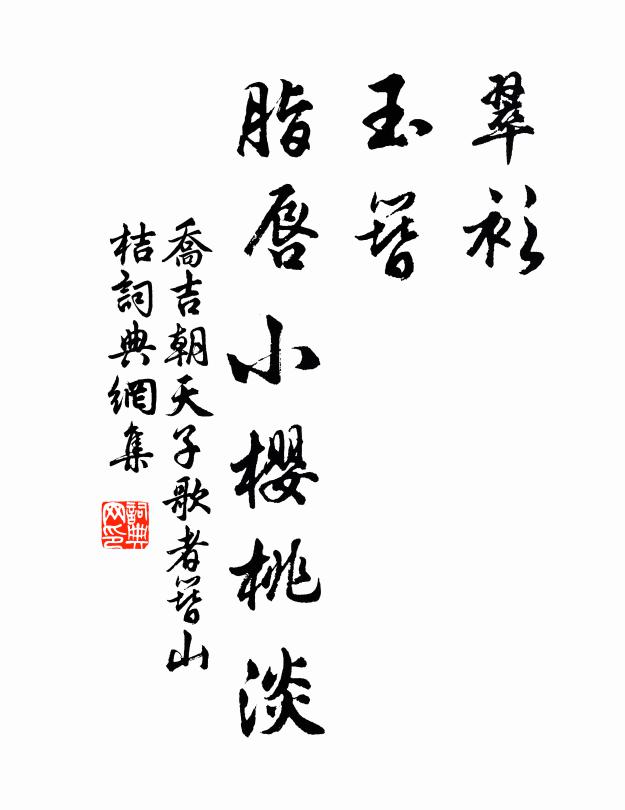 翠衫
玉簪
脂唇小櫻桃淡
喬吉朝天子歌者簪山
桔詞典網集
詞典
网印